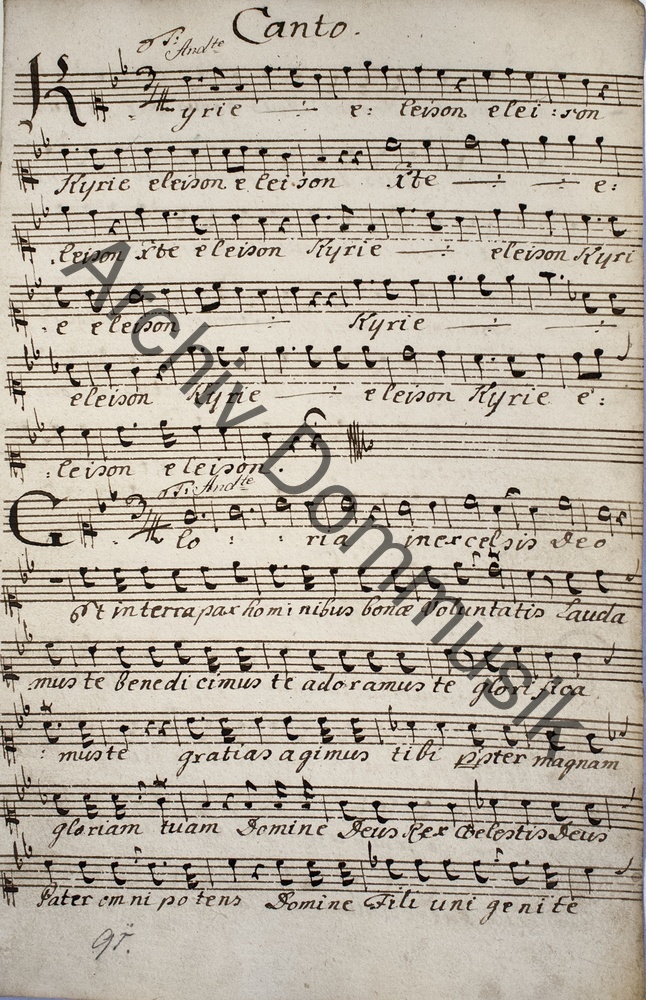 Canto.
T: Andte
Kyrie e: leison elei:son
Kyrie eleison e leison Xte e:
:leison Xte eleison Kyrie eleison Kyri
e eleison Kyrie
eleison Kyrie eleison Kyrie e:
:leison eleison.
T: Andte
Glo : : ria in excelsis Deo
Et in terra pax homi nibus bonæ Voluntatis Lauda
mus te benedi cimus te adoramus te glorifica
: muste gratias agimus tibi ppter magnam
gloriam tuam Domine Deus Rex Cœlestis Deus
Pater omni po tens Domine Fili uni genite
Archiv Dommusik